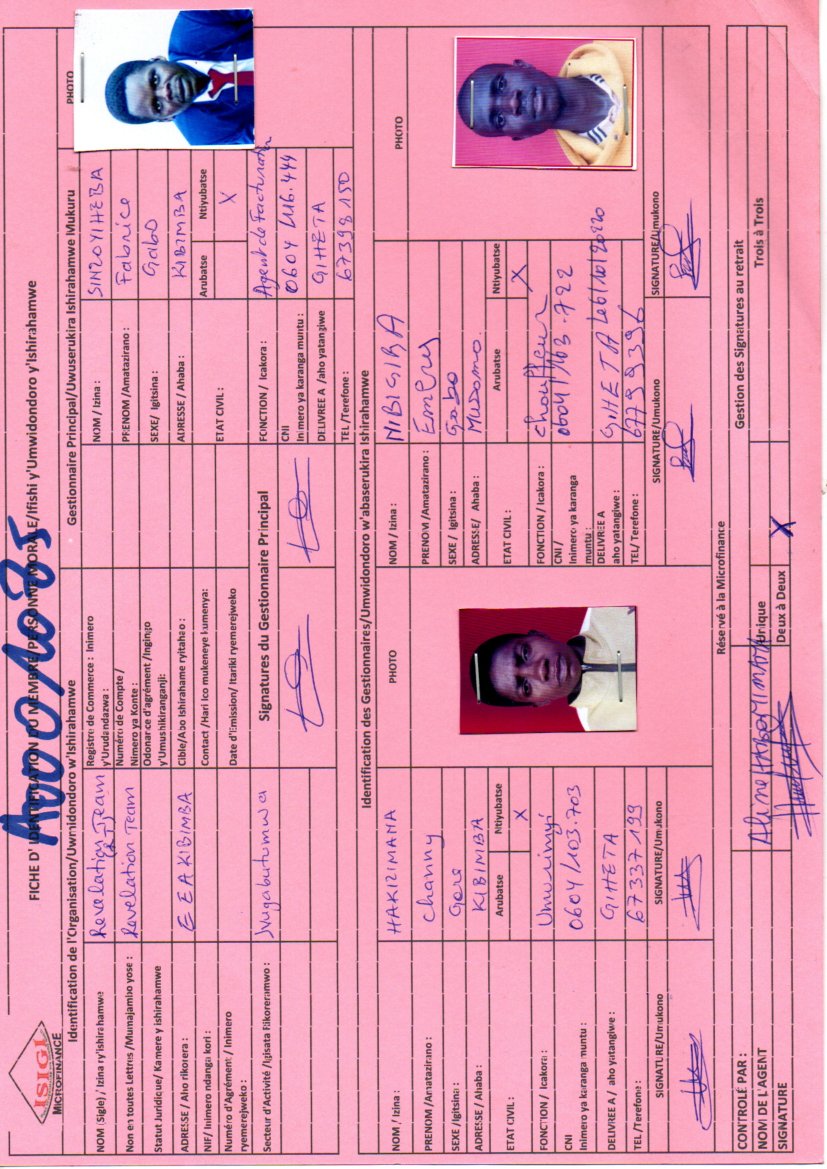 A000/1085
ISIGI
MICROFINANCE
FICHE D'IDENTIFICATION DU MEMBRE PERSONNE MORALE/Ifishi y'Umwidondoro y'Ishirahamwe
Identification de l'Organisation/Uwmidondoro w'Ishirahamwe
NOM (Sigle) / Izina ry'ishirahamwe
Revelation Team
Non en toutes Lettres /Mumajambo yose :
Revelation Team
Statut Juridique/ Kamere y ishirahamwe
ADRESSE / Aho rikorera :
E E A KIBIMBA
NIF/ Inimero ndanga kori :
Numéro d'Agrément / Inimero
ryemerejweko :
Secteur d'Activité /Igisata Rikoreramwo :
Ivugabutumwa
Registre de Commerce : Inimero
y'Urudandazwa :
Numéro de Compte /
Nimero ya Konte :
Odonance d'agrément /Ingingo
y'Umushikiranganji:
Cible/Abo Ishirahame ryitaho :
Contact /Hari Ico mukeneye kumenya:
Date d'Emission/ Itariki ryemerejweko
Signatures du Gestionnaire Principal
Gestionnaire Principal/Uwuserukira Ishirahamwe Mukuru
PHOTO
NOM / Izina :
SINZOYIHEBA
PRENOM /Amatazirano :
Fabrice
SEXE/ Igitsina :
Gabo
ADRESSE / Ahaba :
KIBIMBA
ETAT CIVIL :
Arubatse
Ntiyubatse
X
FONCTION / Icakora :
Agent de Facturation
CNI
Inimero ya karanga muntu :
0604/116.444
DELIVREE A /aho yatangiwe
GIHETA
TEL /Terefone :
67398150
Identification des Gestionnaires/Umwidondoro w'abaserukira Ishirahamwe
NOM / Izina :
HAKIZIMANA
PHOTO
PRENOM /Amatazirano :
Channy
SEXE /Igitsina :
Gore
ADRESSE / Ahaba :
KIBIMBA
ETAT CIVIL :
Arubatse
Ntiyubatse
X
FONCTION / Icakora :
Umurimyi
CNI
Inimero ya karanga muntu :
0604/103.703
DELIVREE A / aho yatangiwe :
GIHETA
TEL /Terefone :
67337199
SIGNATURE/Umukono
SIGNATURE/Umukono
NOM / Izina :
NIBIGIRA
PHOTO
PRENOM /Amatazirano :
Emery
SEXE / Igitsina :
Gabo
ADRESSE/ Ahaba :
Mudomo.
ETAT CIVIL :
Arubatse
Ntiyubatse
X
FONCTION / Icakora :
chauffeur
CNI /
Inimero ya karanga
muntu :
0604/103.722
DELIVREE A
aho yatangiwe :
GIHETA Le 6/10/2020
TEL/ Terefone :
67799396
SIGNATURE/Umukono
SIGNATURE/Umukono
Réservé à la Microfinance
CONTROLÉ PAR :
NOM DE L'AGENT
Aline HABOMIMANA
SIGNATURE
Gestion des Signatures au retrait
Unique
Deux à Deux
X
Trois à Trois